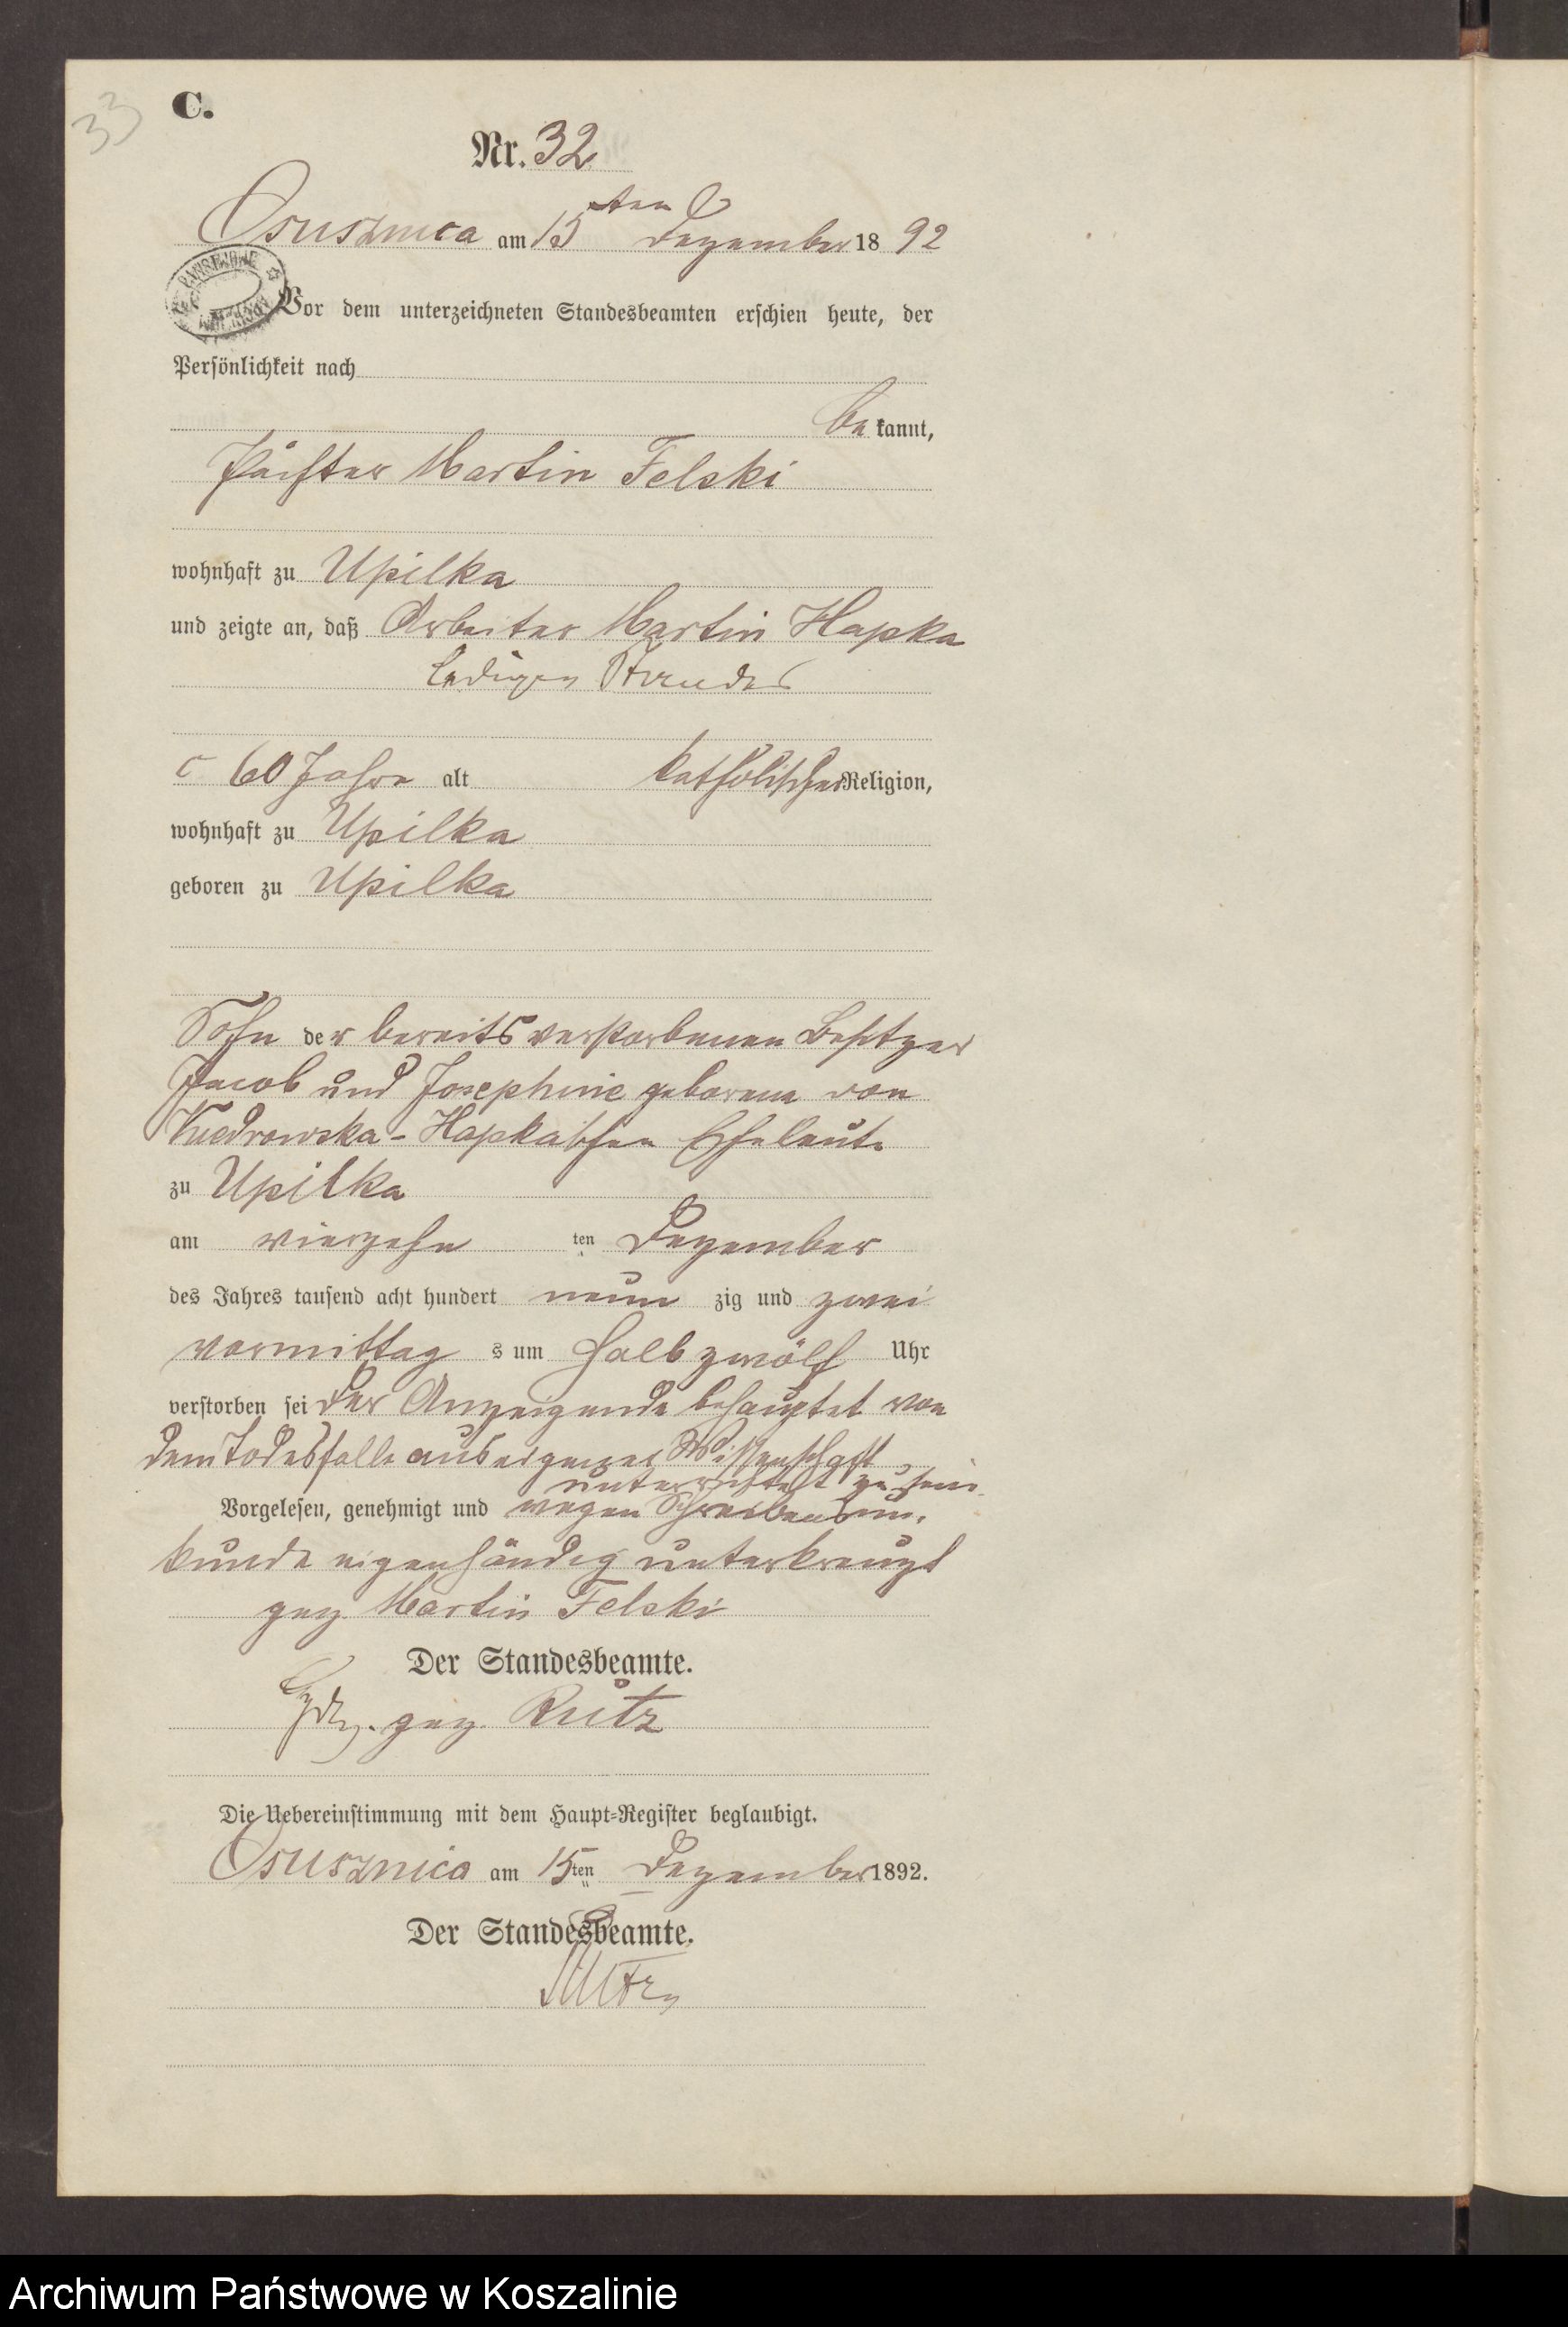 33
C.
Nr. 32
Osusznica am 15ten Dezember 18 92
Vor dem unterzeichneten Standesbeamten erschien heute, der
Persönlichkeit nach
be kannt,
Pächter Martin Felski
wohnhaft zu Upilka
und zeigte an, daß Arbeiter Martin Hapka
ledigen Standes
c 60 Jahre alt katholischer Religion,
wohnhaft zu Upilka
geboren zu Upilka
Sohn der bereits verstorbenen Besitzer
Jacob und Josephine geborene von
Hapkaschen Eheleute
zu Upilka
am vierzehn ten Dezember
des Jahres tausend acht hundert neun zig und zwei
vormittag s um halb zwölf Uhr
verstorben sei der Anzeigende behauptet von
dem Todesfalle aus eigener Wissenschaft
unterrichtet zu sein.
Vorgelesen, genehmigt und wegen Schreibensun-
kunde eigenhändig unterkreuzt
gez. Martin Felski
Der Standesbeamte.
gez. Rutz
Die Uebereinstimmung mit dem Haupt-Register beglaubigt.
Osusznica am 15ten Dezember 1892.
Der Standesbeamte.
Rutz
Archiwum Państwowe w Koszalinie